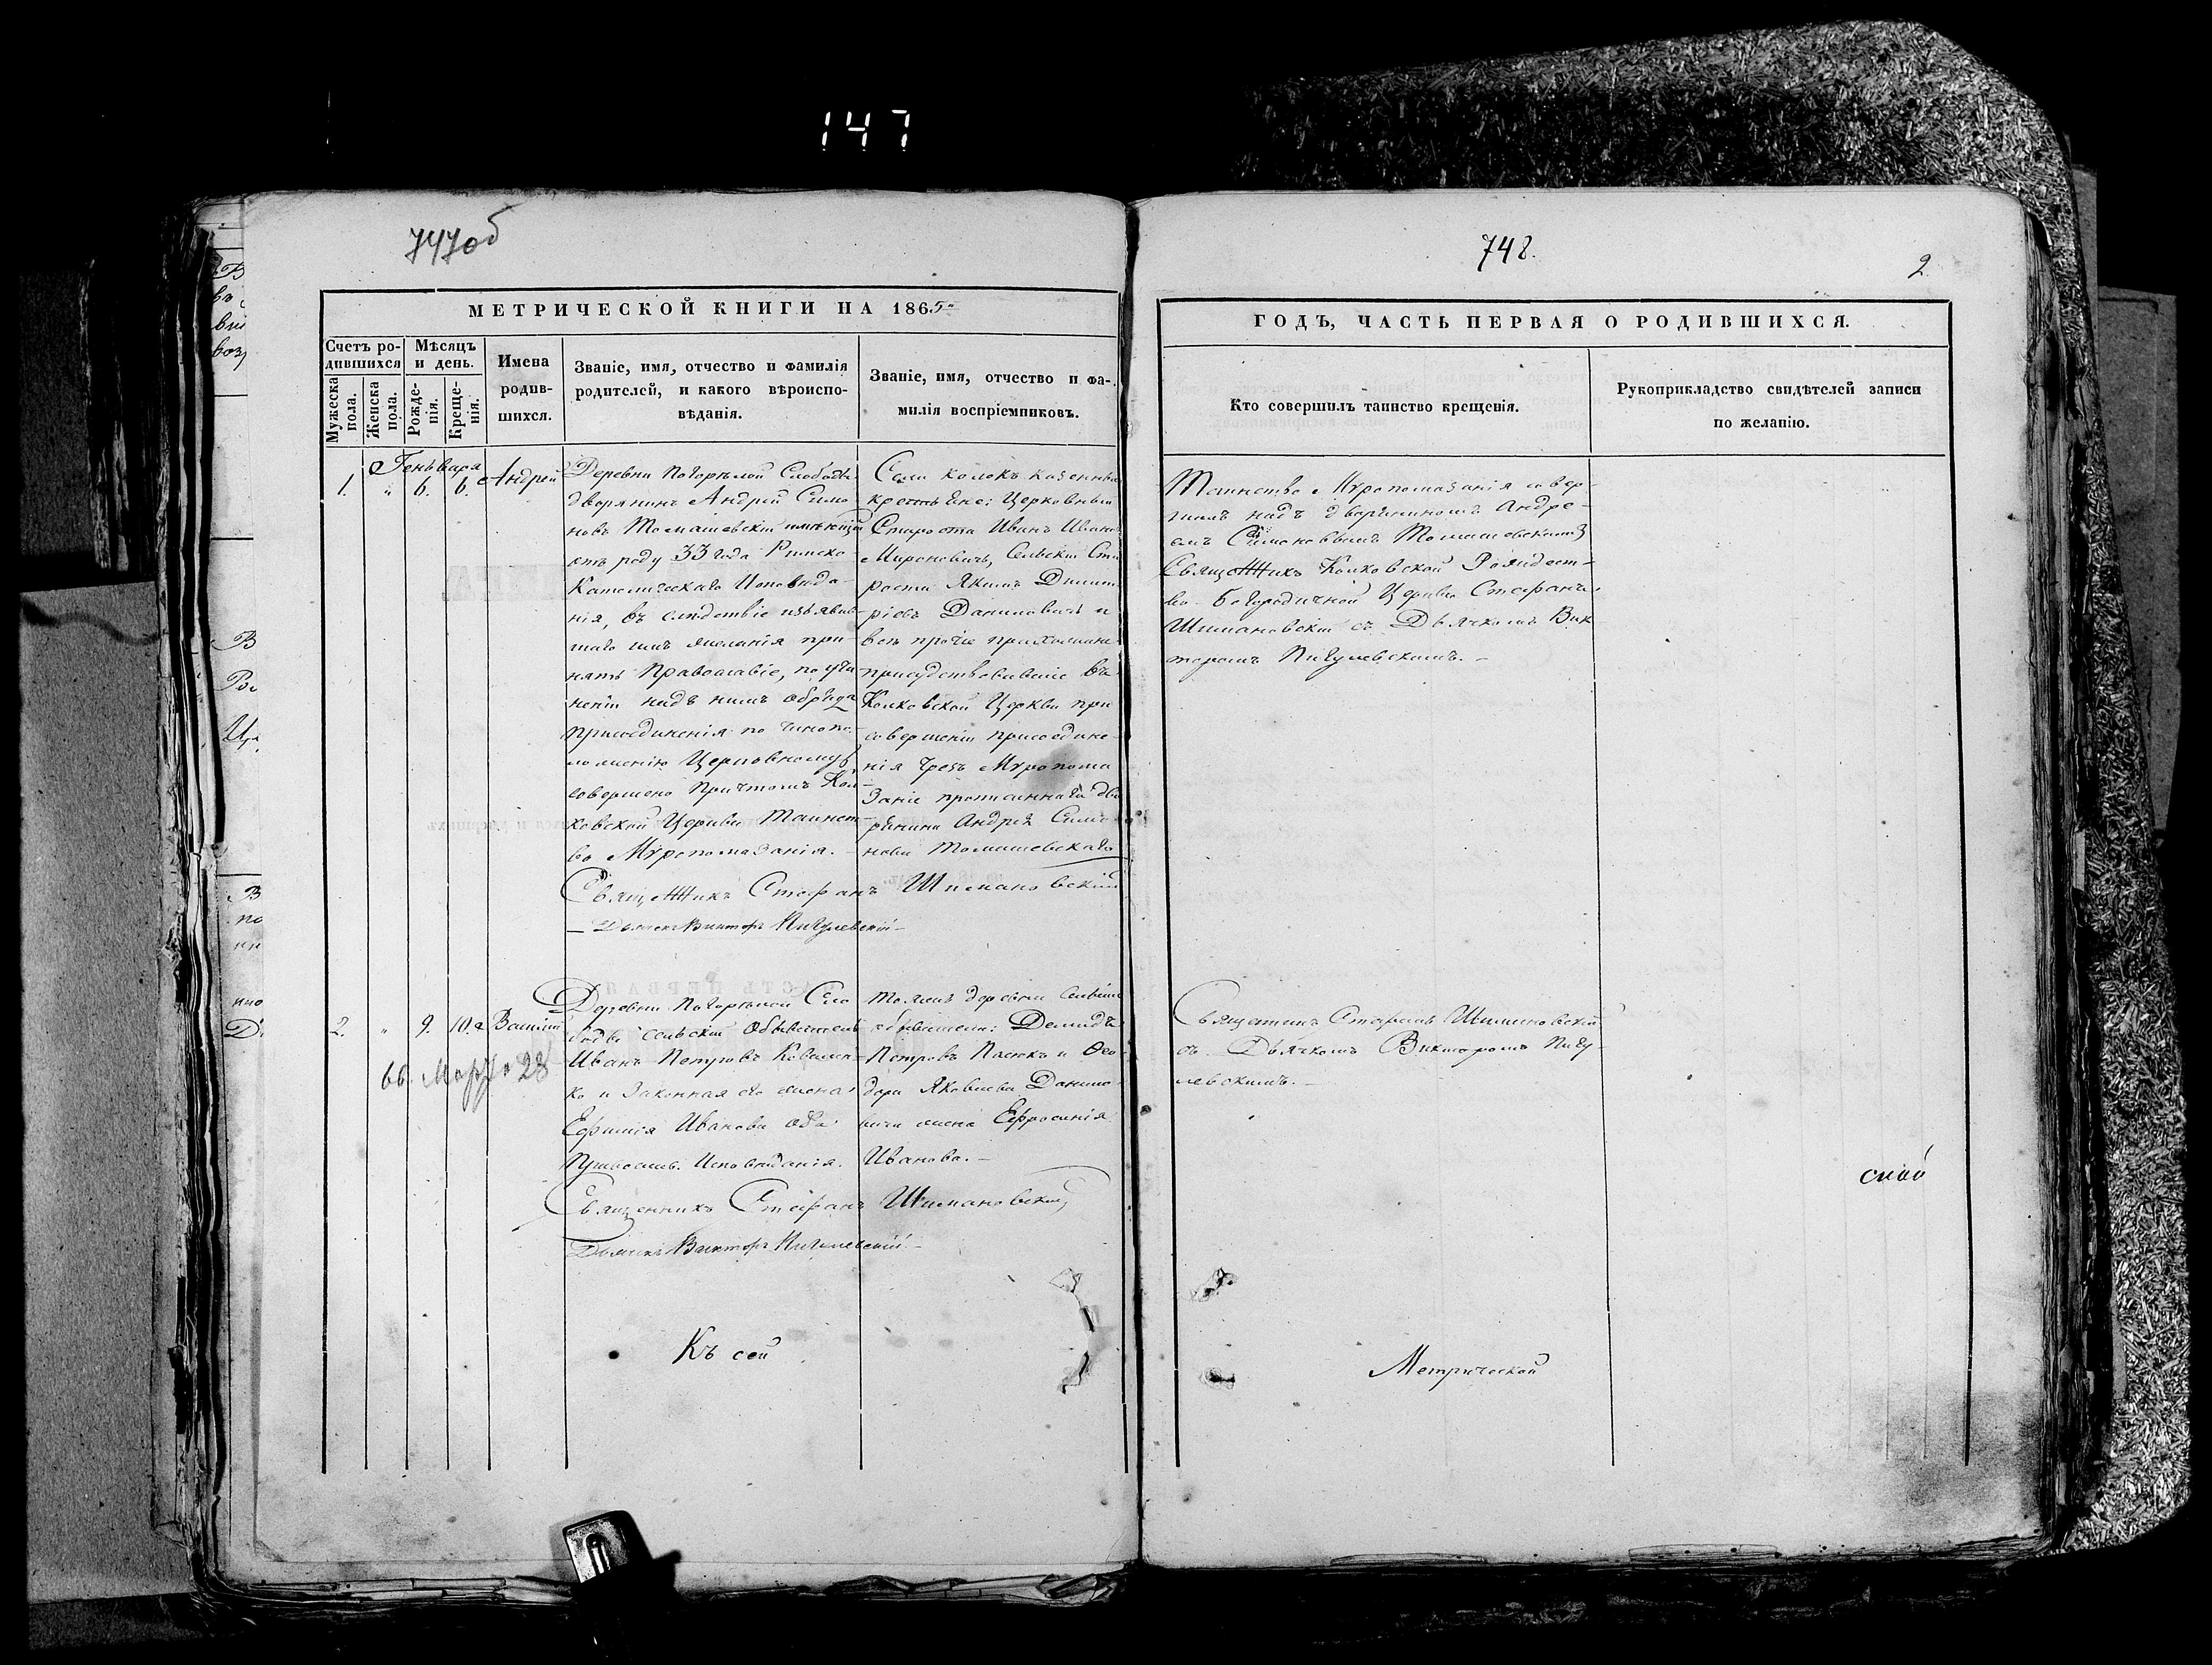 147
747об
748.
2
МЕТРИЧЕСКОЙ КНИГИ НА 1865
ГОДЪ, ЧАСТЬ ПЕРВАЯ О РОДИВШИХСЯ.
Счетъ ро-
дившихся
Мужеска
пола.
Женска
пола.
Мѣсяцъ
и день.
Рожде-
нія.
Креще-
нія.
Имена
родив-
шихся.
Званіе, имя, отчество и фамилія
родителей, и какого вѣроиспо-
вѣданія.
Званіе, имя, отчество и фа-
милія воспріемниковъ.
Кто совершилъ таинство крещенія.
Рукоприкладство свидѣтелей записи
по желанію.
Генъваря
1. " 6. 6. Андрей
Деревни Погорѣлой Слободы
дворянинъ Андрей Симо
новъ Томашевскій имѣющій
отъ роду 33 года Римско
Католическаго Исповѣда-
нія, въ слѣдствіе изъявив-
шаго имъ желанія при-
нять Православіе, по учи
неніи надъ нимъ обряда
присоединенія по чинопо-
ложенію Церковному
совершено Причтомъ Кол
ковской Церкви Таинст-
во Мѵропомазанія.
Села Колокъ казенные
крестьяне: Церковный
Староста Иванъ Иванов
Мироновичъ, Сельскій Ста
роста Якимъ Димит
ріевъ Даниловичъ и
всѣ прочіе прихожане
присудствовавшіе въ
Колковской Церкви при
совершеніи присоедине-
нія чрезъ Мѵропома
заніе прописаннаго дво
рянина Андрея Симо
нова Томашевскаго
Священникъ Стефанъ Шимановскій
Дьячекъ Викторъ Пигулевскій
Таинство Мѵропомазанія совер-
шилъ надъ дворяниномъ Андре-
емъ Симоновымъ Томашевскимъ
Священникъ Колковской Рождест-
во-Богородичной Церкви Стефанъ
Шимановскій съ Дьячкомъ Вик
торомъ Пигулевскимъ.
2. " 9. 10. Василій
66. Марта 28
Деревни Погорѣлой Сло
боды сельскій обыватель
Иванъ Петровъ Ковален-
ко и Законная его жена
Ефимія Иванова оба
Православ. Исповѣданія.
Тоейже деревни сельскіе
обыватели: Демидъ
Петровъ Пасюкъ и Ѳео-
дора Яковлева Данило-
вича жена Ефросинія
Иванова.
Священникъ Стефанъ Шимановскій
Дьячекъ Викторъ Пигулевскій
Священникъ Стефанъ Шимановскій
съ Дьячкомъ Викторомъ Пигу-
левскимъ.
Къ сей
Метрической